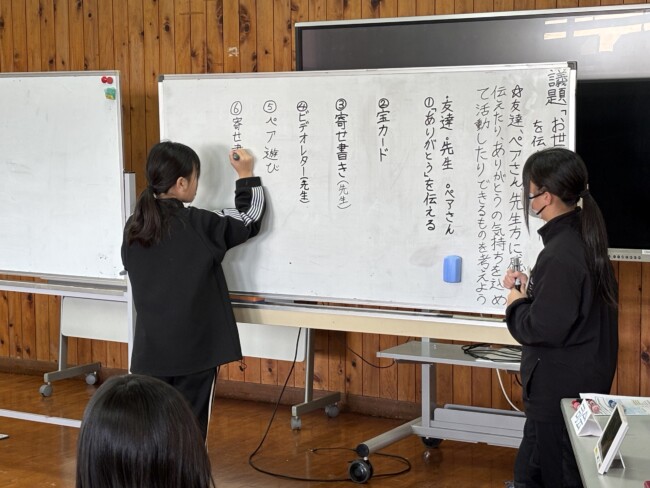 議題「お世
を伝
☆友達、ペアさん 先生方に感
伝えたり、ありがとうの気持ちを込め
て活動したりできるものを考えよう
・友達・先生 ・ペアさん
①「ありがとう」を伝える
②宝カード
③寄せ書き(先生)
④ビデオレター(先生)
⑤ペア遊び
⑥寄せ